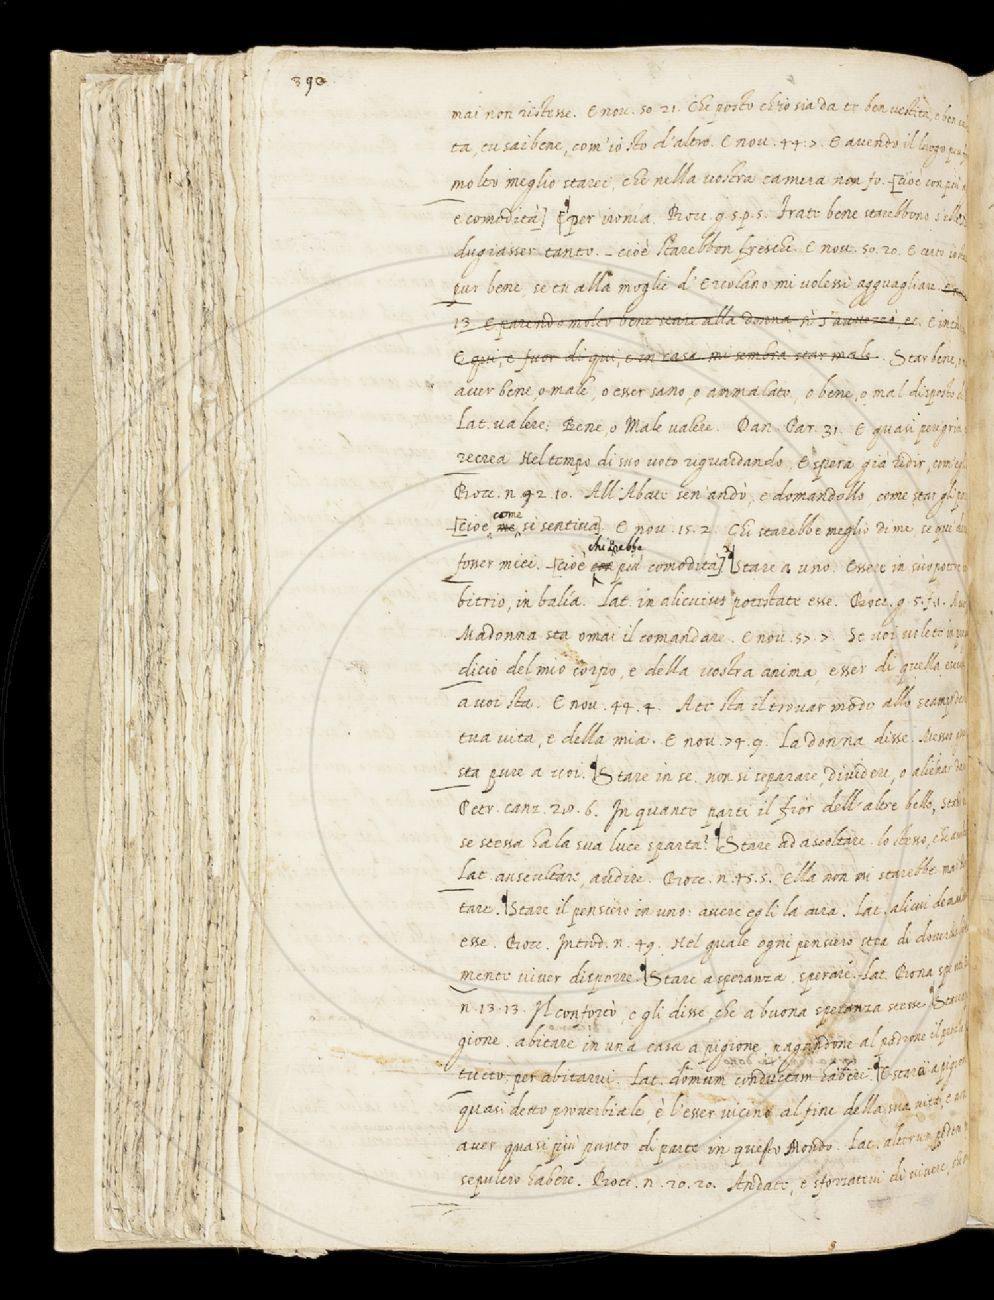 390
mai non ristesse. E nou. 50 21. Che posto ch'io sia da te ben vestita, e ben
ta, tu sai bene, com'io sto d'altro. E nou. 44. 7. E auendo il luogo
molto meglio starei, che nella vostra camera non fo. [cioè con più
e comodità] per ironia. Bocc. g. 5. p. 5. Frate bene starebbono
dugiasser tanto. - cioè starebbon fresche. E nou. 50. 20. E certo io
pur bene, se tu alla moglie d'Ercolano mi volessi agguagliare.
13. E parendo molto bene stare alla donna, si s'auuezzò, ec.
E qui, e fuor di qui, e in casa mi sembra star male. Star bene,
auer bene, o male, o esser sano, o ammalato, o bene, o mal disposto
Lat. valere: Bene, o Male valere. Dan. Par. 31. E quasi peregrin,
recrea Nel tempo di suo voto riguardando, E spera già ridir, com'
Bocc. n. 42. 10. All'Abate sen'andò, e domandollo, come star gli
come
[cioè me, si sentiua]. E nou. 15. 2. Chi starebbe meglio di me, se
che arebbe
fosser miei. [cioè con più comodità] Stare a uno. Essere in suo
bitrio, in balía. Lat. in alicuius potestate esse. Bocc. g. 5. f. 1.
Madonna sta omai il comandare. E nou. 57. 7. Se voi volete
dicio del mio corpo, e della vostra anima, esser di quella
a voi sta. E nou. 44. 4. A te sta il trouar modo allo scampo
tua vita, e della mia. E nou. 74. 9. La donna disse. Messer
sta pure a voi. Stare in se. non si separare, diuidere, o alienar
Petr. canz. 28. 6. In quante parti il fior dell'altre belle,
se stessa ha la sua luce sparta? Stare ad ascoltare. lo stesso, che
Lat. auscultare, audire. Bocc. n. 45. 5. Ella non mi starebbe mai
tare. Stare il pensiero in uno: auere egli la cura. Lat. alicui
esse. Bocc. Introd. n. 49. Nel quale ogni pensiero stea di
mente viuer disporre. Stare a speranza. sperare. Lat. Bona
n. 13. 13. Il confortò, e gli disse, che a buona speranza stesse.
gione. abitare in una casa a pigione, pagandone al padrone il
tutto, per abitarui. Lat. domum conductam habere. E stare a pigione
quasi detto prouerbiale, è l'esser vicino al fine della sua vita,
auer quasi più punto di parte in questo Mondo. Lat. alterum pedem
sepulcro habere. Bocc. n. 20. 20. Andate, e sforzateui di viuere,